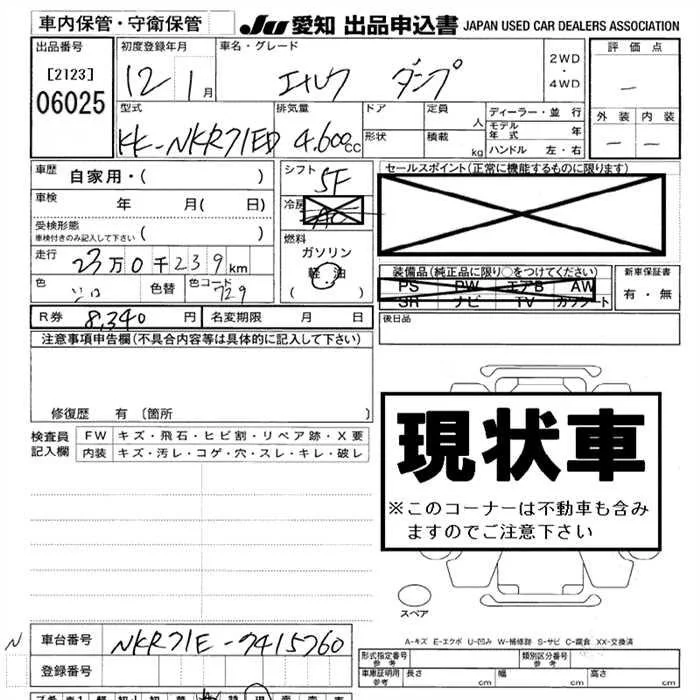 車内保管・守衛保管 JU 愛知 出品申込書 JAPAN USED CAR DEALERS ASSOCIATION
出品番号 初度登録年月 車名・グレード 2WD ・ 4WD 評価点
[2123] 12 1月 エルフ ダンプ —
06025 型式 排気量 ドア 定員 人 ディーラー・並行 外装 内装
KK-NKR71ED 4.600cc 形状 積載 kg モデル年式 年 — —
ハンドル 左・右
車歴 自家用・( ) シフト 5F セールスポイント(正常に機能するものに限ります)
車検 年 月( 日) 冷房 AC
受検形態 ( )
車検付きのみ記入して下さい
燃料 ガソリン
走行 23万0千239km 軽油 装備品(純正品に限り○をつけてください) 新車保証書
色 色替 色コード 729 ( ) PS PW エアB AW 有・無
SR ナビ TV カワシート
R券 8,340円 名変期限 月 日 後日品
注意事項申告欄(不具合内容等は具体的に記入して下さい)
修復歴 有 [箇所 ]
現状車
※このコーナーは不動車も含み
ますのでご注意下さい
検査員 FW キズ・飛石・ヒビ割・リペア跡・X要
記入欄 内装 キズ・汚レ・コゲ・穴・スレ・キレ・破レ
スペア
A-キズ E-エクボ U-凹み W-補修跡 S-サビ C-腐食 XX-交換済
N 車台番号 NKR71E-7415760 形式指定番号 参考 類別区分番号 参考
登録番号 車庫証明用 参考 長さ cm 幅 cm 高さ cm